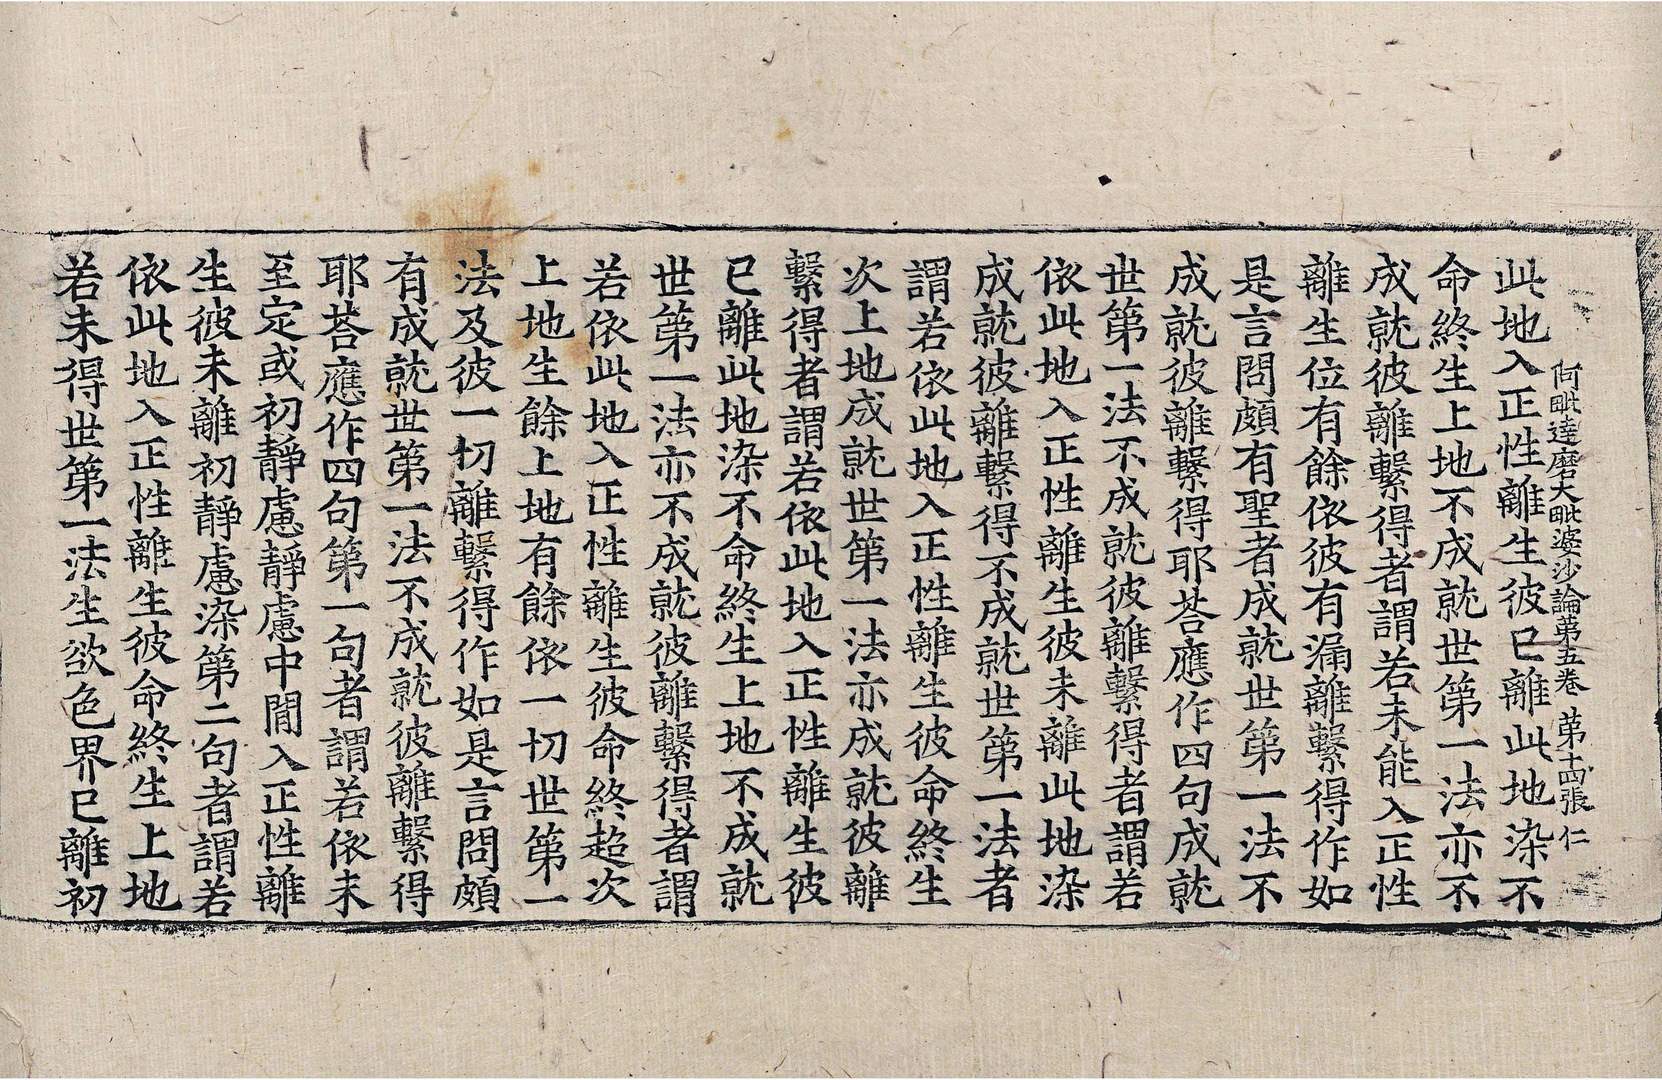 阿毗達磨大毗婆沙論第五卷 第十四張 仁
此地入正性離生彼已離此地染不
命終生上地不成就世第一法亦不
成就彼離繫得者謂若未能入正性
離生位有餘依彼有漏離繫得作如
是言問頗有聖者成就世第一法不
成就彼離繫得耶荅應作四句成就
世第一法不成就彼離繫得者謂若
依此地入正性離生彼未離此地染
成就彼離繫得不成就世第一法者
謂若依此地入正性離生彼命終生
次上地成就世第一法亦成就彼離
繫得者謂若依此地入正性離生彼
已離此地染不命終生上地不成就
世第一法亦不成就彼離繫得者謂
若依此地入正性離生彼命終超次
上地生餘上地有餘依一切世第一
法及彼一切離繫得作如是言問頗
有成就世第一法不成就彼離繫得
耶荅應作四句第一句者謂若依未
至定或初靜慮靜慮中閒入正性離
生彼未離初靜慮染第二句者謂若
依此地入正性離生彼命終生上地
若未得世第一法生欲色界已離初